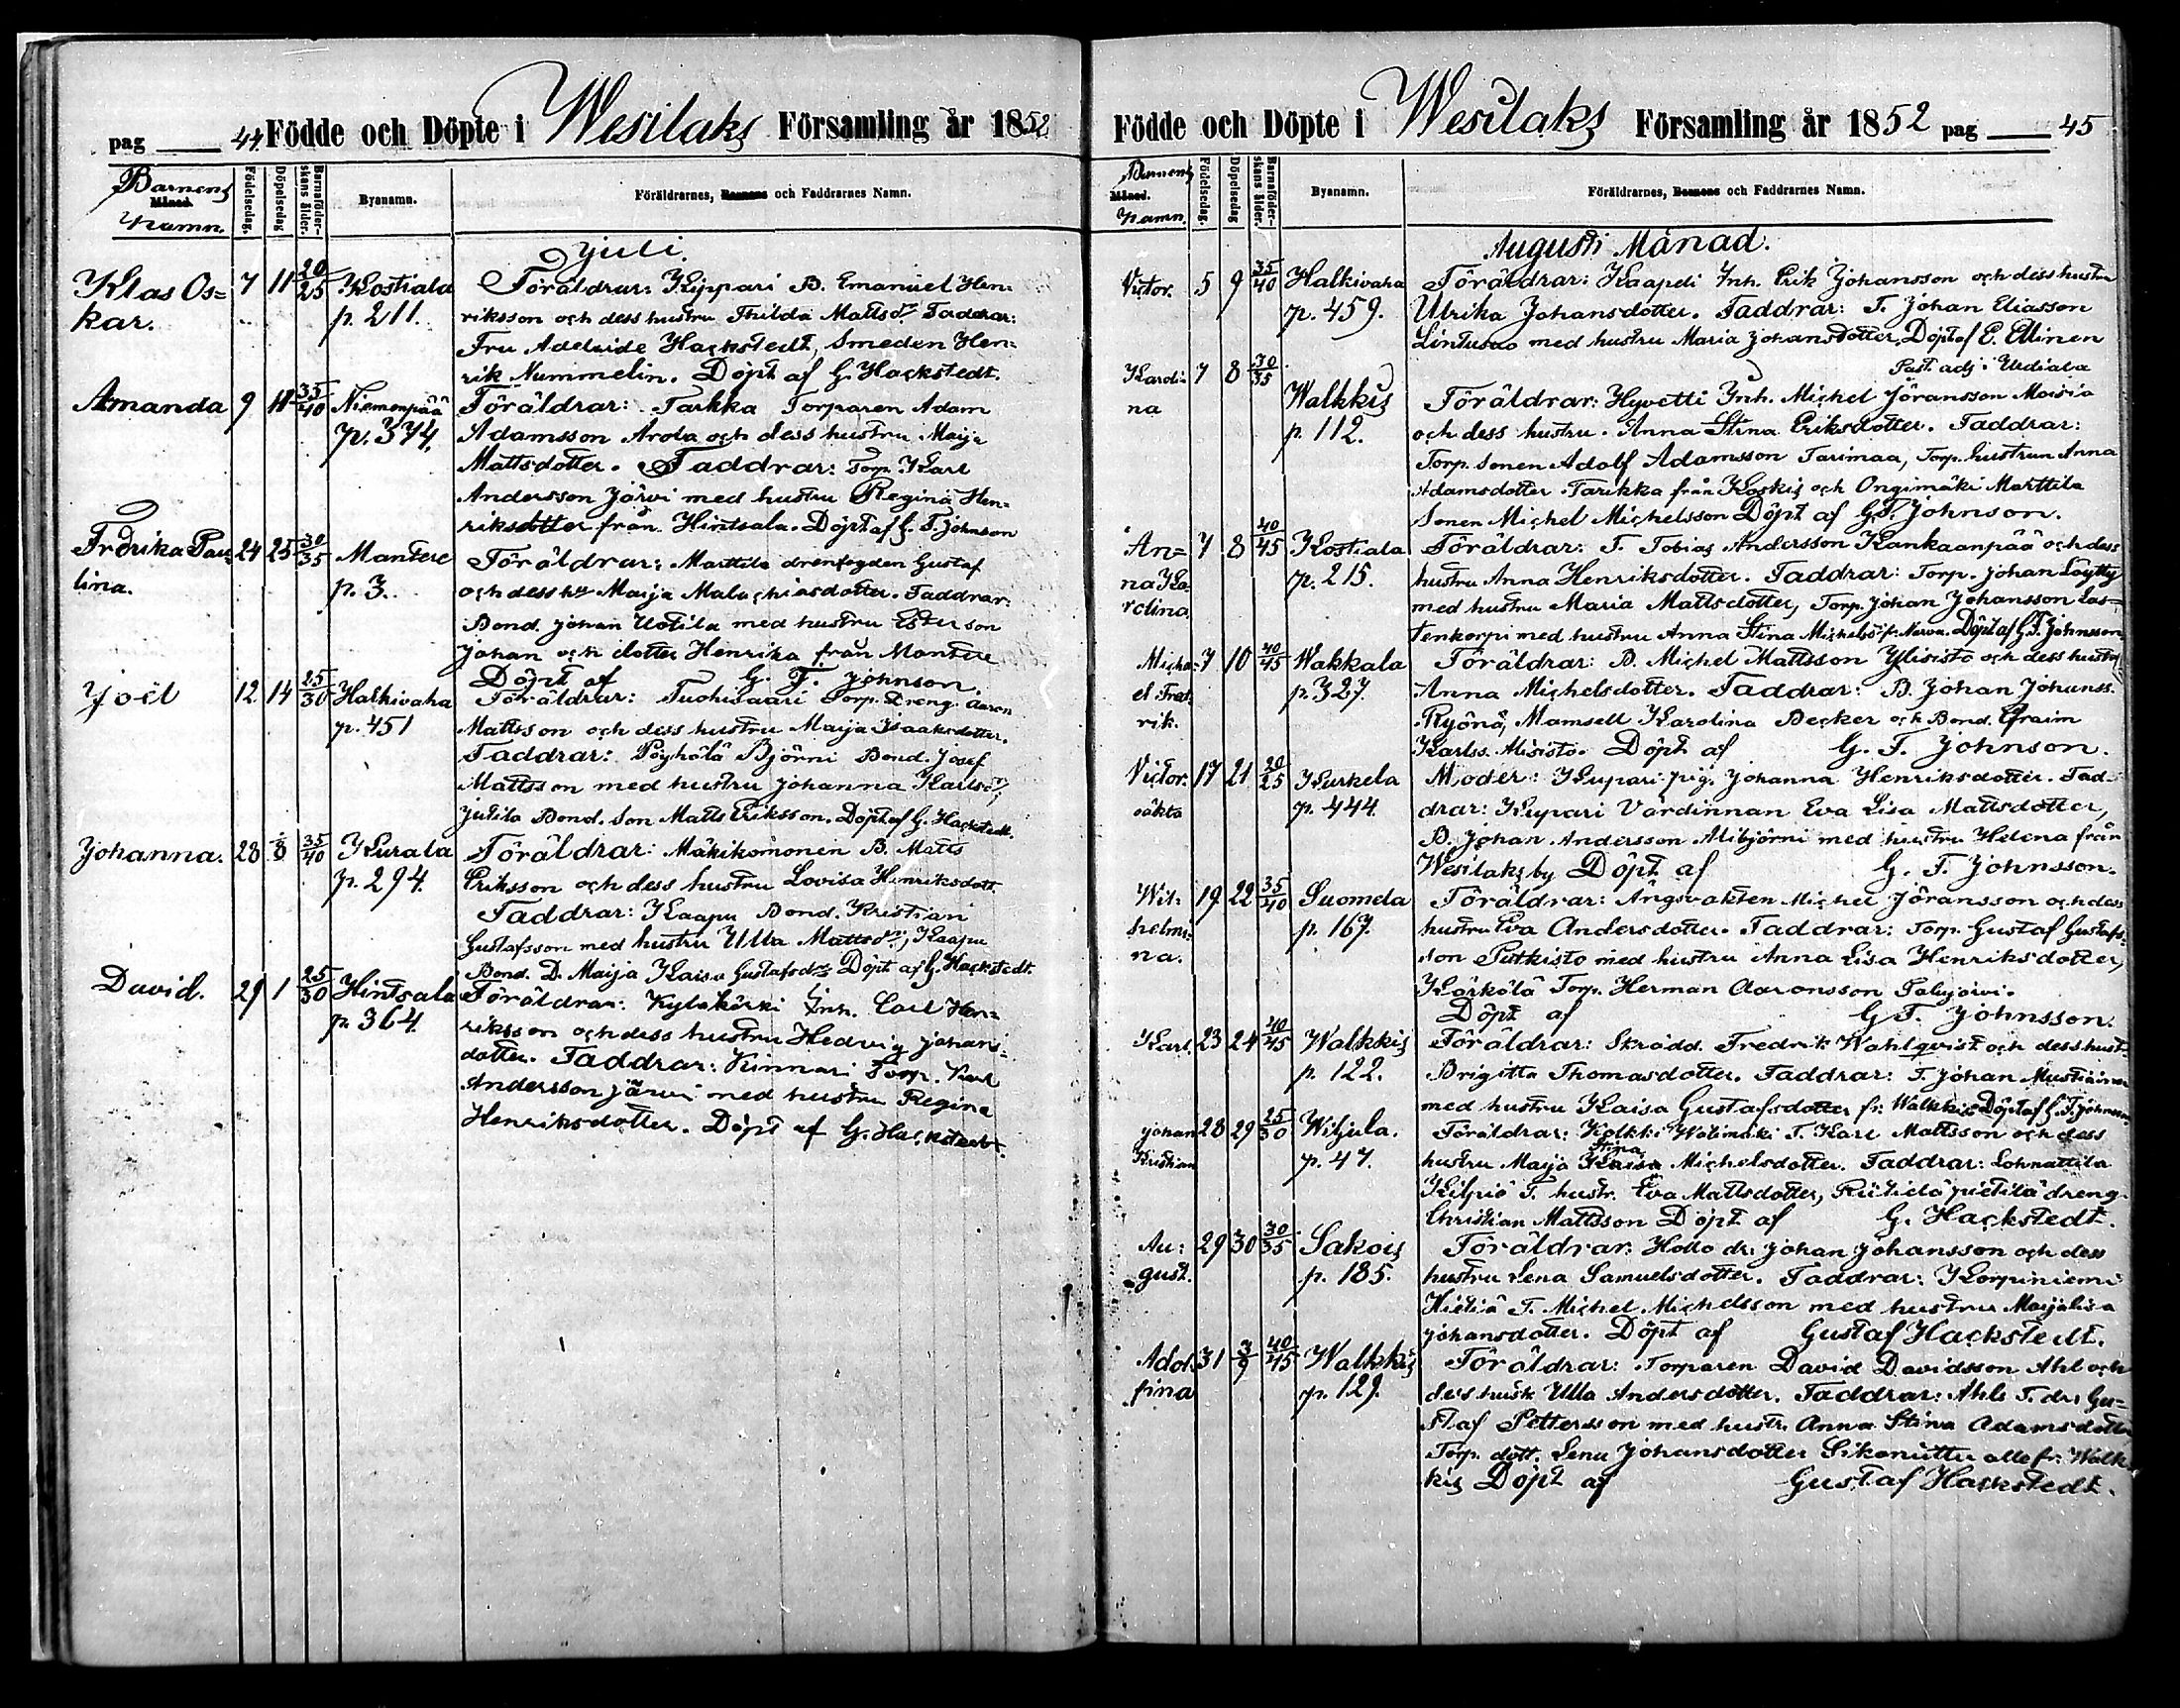 pag 44 Födde och Döpte i Wesilaks Församling år 1852
Barnens Månad. Namn. Födelsedag. Döpelsedag Barnaföderskans ålder. Byanamn. Föräldrarnes, Barnens och Faddrarnes Namn.
Juli.
Klas Os= 7 11 20/25 Kostiala Föräldrar: Kippari B. Emanuel Hen=
kar. p. 211. riksson och dess hustru Thilda Mattsdr. Faddrar:
Fru Adelaide Hackstedt, Smeden Hen=
rik Nummelin. Döpt af G. Hackstedt.
Amanda 9 11 35/40 Niemenpää Föräldrar: Tarkka Torparen Adam
p. 374. Adamsson Arola och dess hustru Maija
Mattsdotter. Faddrar: Torp. Karl
Andersson Järvi med hustru Regina Hen=
riksdotter från Hintsala. Döpt af G. F. Johnson
Fredrika Pau= 24 25 30/35 Mantere Föräldrar: Marttila drenfogden Gustaf
lina. p. 3. och dess hu Maija Malachiasdotter. Faddrar:
Bond. Johan Uotila med hustru Ester son
Johan och dotter Henrika från Mantere
Döpt af G. F. Johnson.
Joël 12 14 25/30 Halkivaha Föräldrar: Tuohisaari Torp. Dreng Aaron
p. 451 Mattsson och dess hustru Maija Isaaksdotter.
Faddrar: Pöyhölä Björni Bond. Josef
Mattsson med hustru Johanna Karlsdr,
Jutila Bond. Son Matts Eriksson. Döpt af G. Hackstedt.
Johanna. 28 1/8 35/40 Kurala Föräldrar: Mäkikomonen B. Matts
p. 294. Eriksson och dess hustru Lovisa Henriksdott
Faddrar: Kaapu Bond. Kristian
Gustafsson med hustru Ulla Mattsdr, Kaapu
Bond. D. Maija Kaisa Gustafsdr Döpt af G. Hackstedt.
David. 29 1 25/30 Hintsala Föräldrar: Kyläkoski Inh. Carl Hen=
p. 364. riksson och dess hustru Hedvig Johans=
dotter. Faddrar: Kinnari Torp. Karl
Andersson Järvi med hustru Regina
Henriksdotter. Döpt af G. Hackstedt.
Födde och Döpte i Wesilaks Församling år 1852 pag 45
Barnens Månad. Namn. Födelsedag. Döpelsedag Barnaföderskans ålder. Byanamn. Föräldrarnes, Barnens och Faddrarnes Namn.
Augusti Månad.
Victor. 5 9 35/40 Halkivaha Föräldrar: Kaapeli Inh. Erik Johansson och dess hustru
p. 459. Ulrika Johansdotter. Faddrar: T. Johan Eliasson
Lintusao med hustru Maria Johansdotter, Döpt af E. Ellinen
Past. adj. i Urdiala
Karoli= 7 8 30/35 Walkkis Föräldrar: Hyvetti Inh. Michel Jöransson Moisio
na p. 112. och dess hustru. Anna Stina Eriksdotter. Faddrar:
Torp. sonen Adolf Adamsson Tarimaa, Torp. hustrun Anna
Adamsdotter Tarukka från Koskis och Ongimäki Marttila
Sonen Michel Michelsson Döpt af G. F. Johnson.
An= 7 8 40/45 Kostiala Föräldrar: T. Tobias Andersson Kankaanpää och dess
na Ka= p. 215. hustru Anna Henriksdotter. Faddrar: Torp. Johan Löytty
rolina. med hustru Maria Mattsdotter, Torp. Johan Johansson Las=
tenkorpi med hustru Anna Stina Michelsdr fr. Narva. Döpt af G. F. Johnsson
Micha= 7 10 40/45 Wakkala Föräldrar: B. Michel Mattsson Ylisisto och dess hustru
el Fred= p. 327. Anna Michelsdotter. Faddrar: B. Johan Johanss.
rik. Ryönä, Mamsell Karolina Becker och Bond. Efraim
Karlss. Alisisto. Döpt af G. F. Johnson.
Victor. 17 21 20/25 Kurkela Moder: Kupari pig. Johanna Henriksdotter. Fad=
oäkta p. 444. drar: Kupari Värdinnan Eva Lisa Mattsdotter,
B. Johan Andersson Alibjörni med hustru Helena från
Wesilaks by Döpt af G. F. Johnsson.
Wil= 19 22 35/40 Suomela Föräldrar: Ängsvakten Michel Jöransson och dess
helmi= p. 167. hustru Eva Andersdotter. Faddrar: Torp. Gustaf Gustafs=
na. son Putkisto med hustru Anna Lisa Henriksdotter,
Kärkölä Torp. Herman Aaronsson Palujärvi.
Döpt af G. F. Johnsson.
Karl. 23 24 40/45 Walkkis Föräldrar: Skrädd. Fredrik Wahlqvist och dess hust=
p. 122. Brigitta Thomasdotter. Faddrar: T. Johan Mustiainen
med hustru Kaisa Gustafsdotter fr. Walkkis Döpt af G. F. Johnsson
Johan 28 29 25/30 Witjula. Föräldrar: Kolkki Wälimäki T. Karl Mattsson och dess
Kristian p. 47. hustru Maija Kaisa Stina Michelsdotter. Faddrar: Lohnattila
Kilpiö T. hustr. Eva Mattsdotter, Riihelä pietilä dreng
Christian Mattsson Döpt af G. Hackstedt.
Au= 29 30 30/35 Sakois Föräldrar: Hollo dr. Johan Johansson och dess
gust. p. 185. hustru Lena Samuelsdotter. Faddrar: Korpiniemi
Hietiä T. Michel Michelsson med hustru Maijalisa
Johansdotter. Döpt af Gustaf Hackstedt.
Adol= 31 3/9 40/45 Walkkis Föräldrar: Torparen David Davidsson Ahl och
fina p. 129. dess hustr Ulla Andersdotter. Faddrar: Ahls T. dr. Gu=
staf Pettersson med hustr. Anna Stina Adamsdotter
Torp. dott. Lena Johansdotter Sikoniitty alle fr. Walk=
kis Döpt af Gustaf Hackstedt.